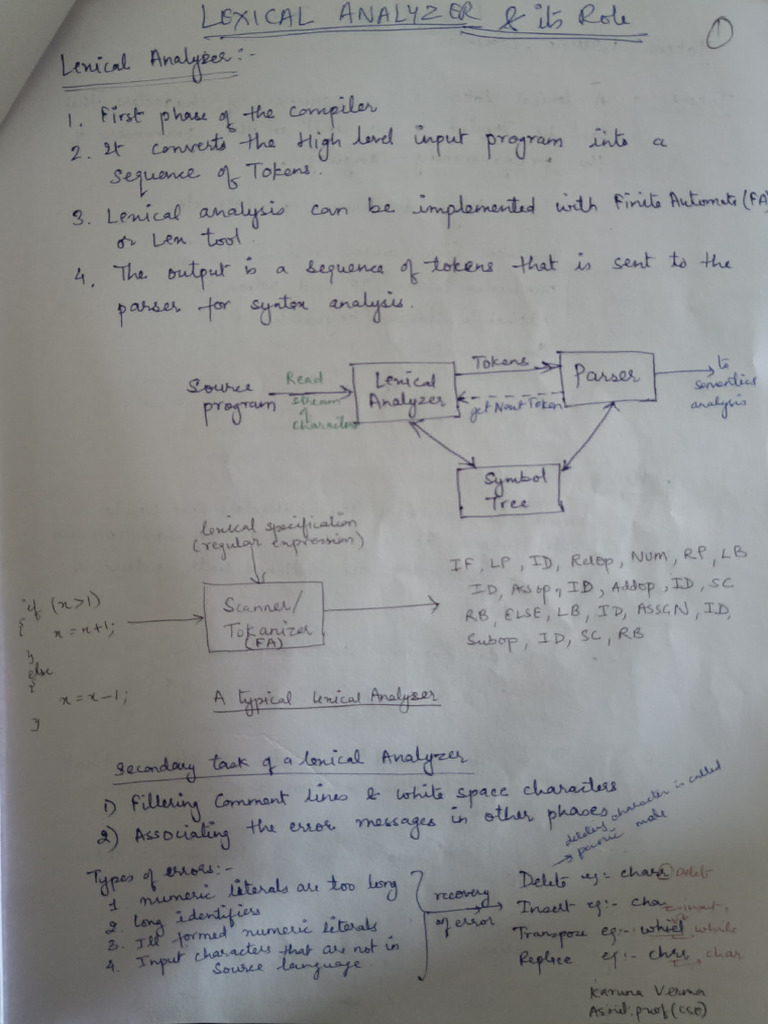 LEXICAL ANALYZER & its Role
1
Lexical Analyzer:-
1. First phase of the compiler
2. It converts the High level input program into a
sequence of Tokens.
3. Lexical analysis can be implemented with Finite Automata (FA)
or Lex tool.
4. The output is a sequence of tokens that is sent to the
parser for syntax analysis.
Source
program
Read
stream
of
characters
Lexical
Analyzer
Tokens
get Next Token
Parser
to
semantics
analysis
Symbol
Tree
lexical specification
(regular expression)
if (x>1)
{
x = x+1;
}
else
{
x = x-1;
}
Scanner/
Tokanizer
(FA)
IF, LP, ID, Relop, Num, RP, LB
ID, Assop, ID, Addop, ID, SC
RB, ELSE, LB, ID, ASSGN, ID,
Subop, ID, SC, RB
A typical Lexical Analyser
Secondary task of a lexical Analyzer
1) Fillering Comment lines & white space characters
2) Associating the error messages in other phases
deleting character is called
→ panic mode
Types of errors:-
1. numeric literals are too long
2. Long identifiers
3. Ill formed numeric literals
4. Input characters that are not in
source language
recovery
of error
Delete eg:- charr delete
Insert eg:- cha
Transpose eg:- whiel while
Replace eg:- chrr char
Karuna Verma
Asist. prof (CSE)